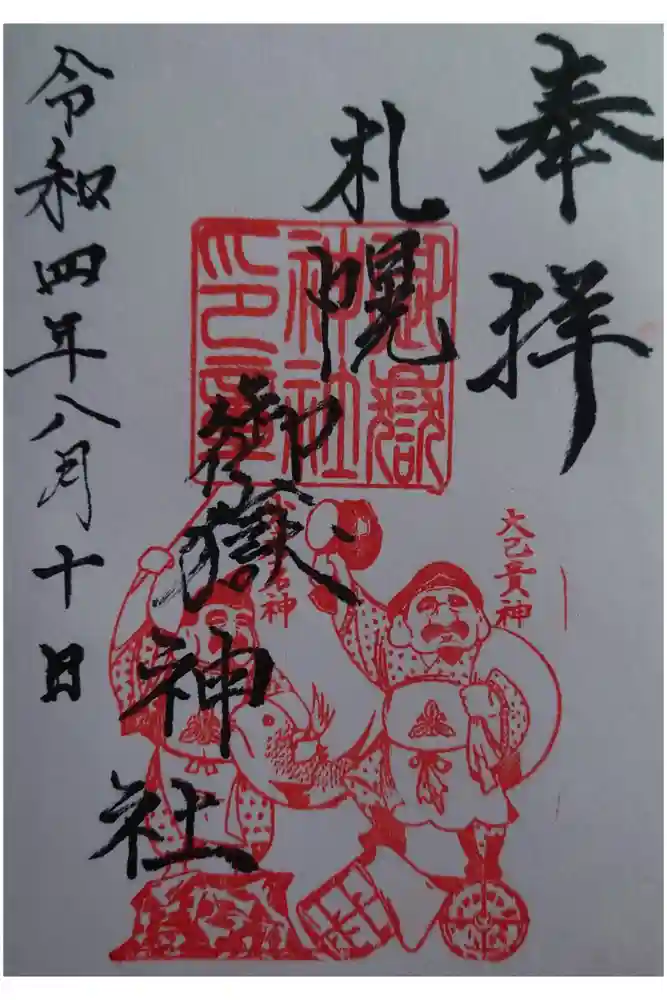 奉拝
札幌
御嶽神社
令和四年八月十日
御嶽
神社
印章
大己貴神